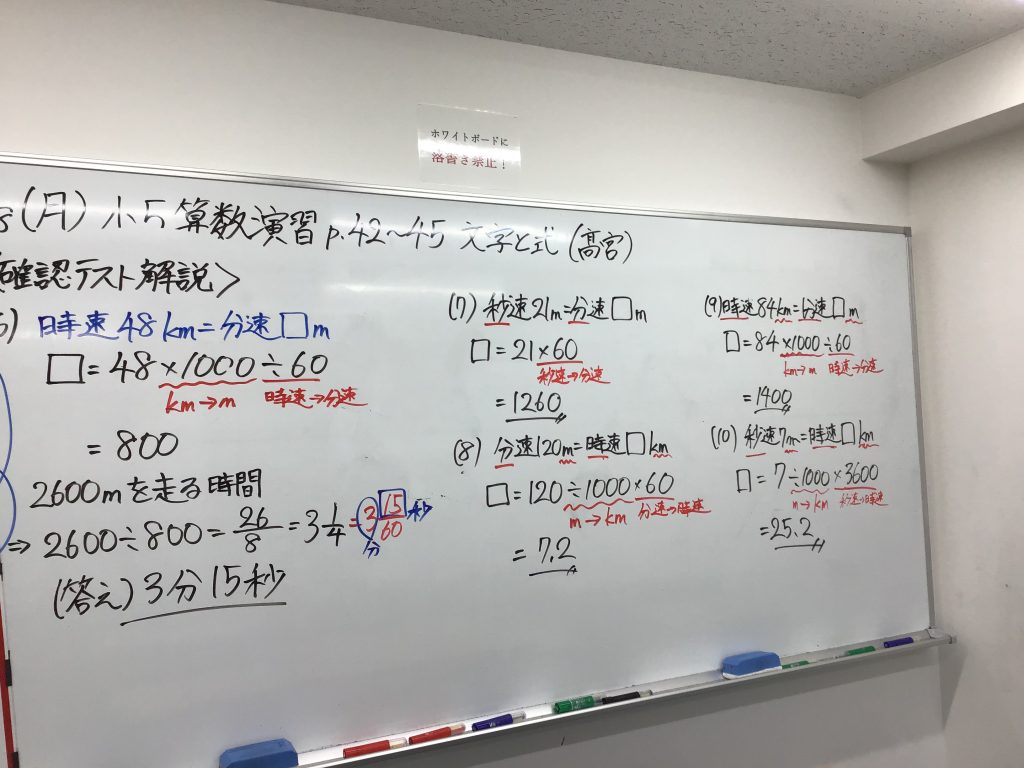 ホワイトボードに
落書き禁止!
8(月) 小5 算数演習 p.42~45 文字と式 (髙宮)
確認テスト解説>
時速48km=分速□m
□=48×1000÷60
km→m 時速→分速
=800
2600mを走る時間
⇒2600÷800=26/8=3 1/4=3 15/60 秒
分
(答え)3分15秒
(7) 秒速21m=分速□m
□=21×60
秒速→分速
=1260
(8) 分速120m=時速□km
□=120÷1000×60
m→km 分速→時速
=7.2
(9) 時速84km=分速□m
□=84×1000÷60
km→m 時速→分速
=1400
(10) 秒速7m=時速□km
□=7÷1000×3600
m→km 秒速→時速
=25.2